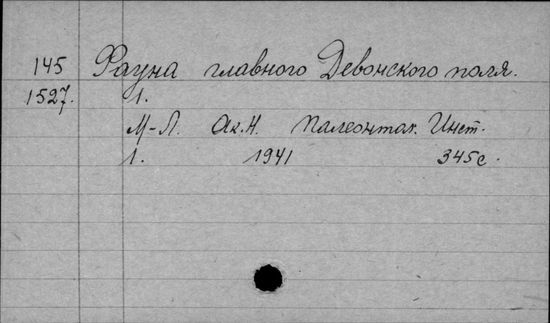 145 Фауна главного Девонского поля.
1527. 1.
М-Л. Ак.Н. Палеонтол. Инст.
1. 1941 345с.